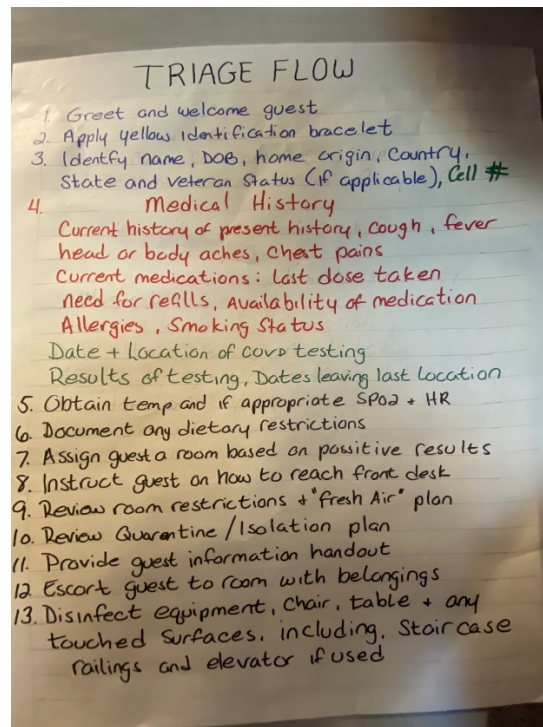 TRIAGE FLOW
1. Greet and welcome guest
2. Apply yellow Identification bracelet
3. Identfy name, DOB, home origin, Country,
State and veteran Status (if applicable), Cell #
4. Medical History
Current history of present history, cough, fever
head or body aches, Chest pains
Current medications: Last dose taken
need for refills, Availability of medication
Allergies, Smoking Status
Date + Location of COVD testing
Results of testing, Dates leaving last location
5. Obtain temp and if appropriate SPO2 + HR
6. Document any dietary restrictions
7. Assign guest a room based on possitive results
8. Instruct guest on how to reach front desk
9. Review room restrictions + "fresh Air" plan
10. Review Quarentine / Isolation plan
11. Provide guest information handout
12 Escort guest to room with belongings
13. Disinfect equipment, Chair, table + any
touched surfaces, including, Stair case
railings and elevator if used